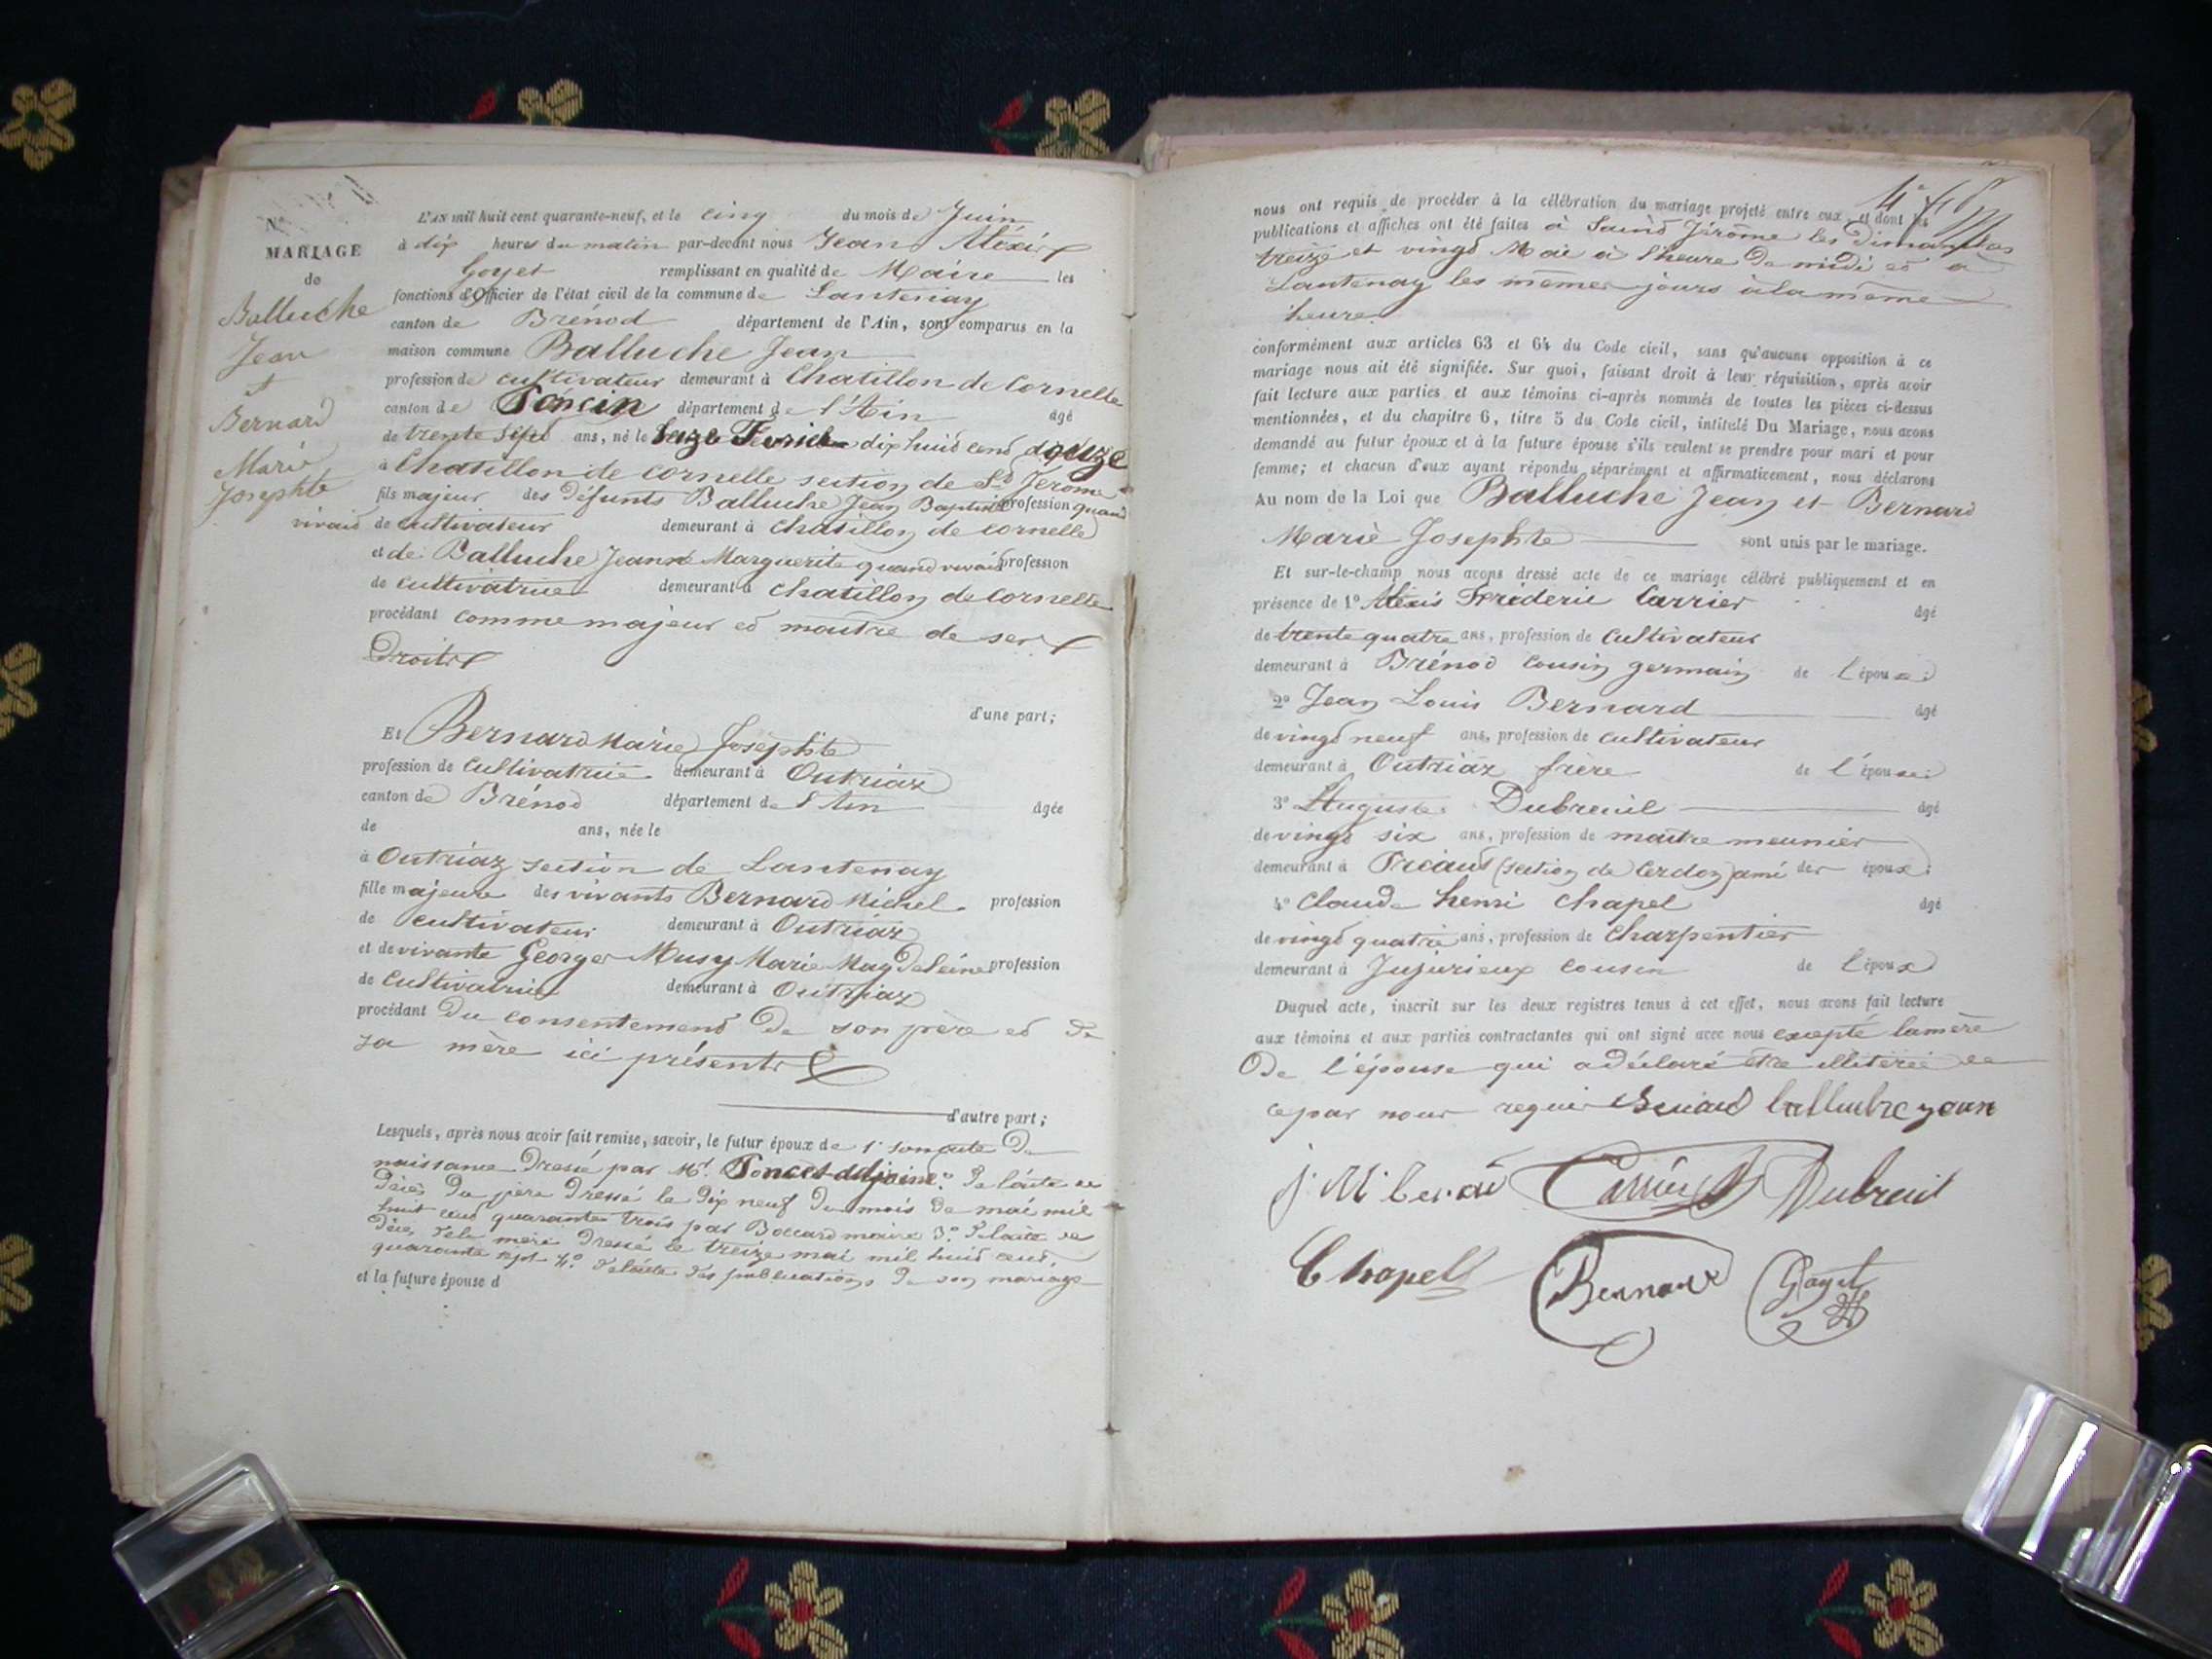 N.º
MARIAGE
de
Balluche
Jean
et
Bernard
Marie
Josephte
L'AN mil huit cent quarante-neuf, et le cinq du mois de Juin
à dix heures du matin par-devant nous Jean Aléxis
Goyet remplissant en qualité de Maire les
fonctions d'Officier de l'état civil de la commune de Lantenay
canton de Brénod département de l'Ain, sont comparus en la
maison commune Balluche Jean
profession de cultivateur demeurant à Chatillon de Cornelle
canton de Poncin département de l'Ain âgé
de trente sept ans, né le Seize Fevrier dix huit cent douze
à Chatillon de cornelle section de St Jérome
fils majeur des défunts Balluche Jean Baptiste profession quand
vivait de cultivateur demeurant à chatillon de cornelle
et de Balluche Jeanne Marguerite quand vivait profession
de cultivatrice demeurant à chatillon de cornelle
procédant comme majeur et maitre de ses
Droits
d'une part;
Et Bernard Marie Josephte
profession de cultivatrice demeurant à Outriaz
canton de Brénod département de l'Ain âgée
de ans, née le
à Outriaz section de Lantenay
fille majeure des vivants Bernard Michel profession
de cultivateur demeurant à Outriaz
et de vivante George Musy Marie Magdeleine profession
de cultivatrice demeurant à Outriaz
procédant Du consentement De son père et De
sa mère ici présents
d'autre part;
Lesquels, après nous avoir fait remise, savoir, le futur époux de 1º son acte De
naissance Dressé par Mr. Poncet adjoint 2º De l'acte de
Décès Du père Dressé le Dix neuf Du mois De mai mil
huit cent quarante trois par Boccard maire 3º De l'acte de
Décès De la mère Dressé le treize mai mil huit cent
quarante sept 4º De l'acte Des publications De son mariage
et la future épouse d
nous ont requis de procéder à la célébration du mariage projeté entre eux, et dont les
publications et affiches ont été faites à Saint Jérôme les Dimanches
treize et vingt Mai à l'heure De midi et à
Lantenay les mêmes jours à la même
heure
conformément aux articles 63 et 64 du Code civil, sans qu'aucune opposition à ce
mariage nous ait été signifiée. Sur quoi, faisant droit à leur réquisition, après avoir
fait lecture aux parties et aux témoins ci-après nommés de toutes les pièces ci-dessus
mentionnées, et du chapitre 6, titre 5 du Code civil, intitulé Du Mariage, nous avons
demandé au futur époux et à la future épouse s'ils veulent se prendre pour mari et pour
femme; et chacun d'eux ayant répondu séparément et affirmativement, nous déclarons
Au nom de la Loi que Balluche Jean et Bernard
Marie Josephte sont unis par le mariage.
Et sur-le-champ nous avons dressé acte de ce mariage célébré publiquement et en
présence de 1º Alexis Fréderic Carrier âgé
de trente quatre ans, profession de cultivateur
demeurant à Brénod cousin germain de l'épouse
2º Jean Louis Bernard âgé
de vingt neuf ans, profession de cultivateur
demeurant à Outriaz frère de l'épouse
3º Auguste Dubreuil âgé
de vingt six ans, profession de maitre meunier
demeurant à Préaut (section de Cerdon) ami des époux
4º Claude henri Chapel âgé
de vingt quatre ans, profession de Charpentier
demeurant à Jujurieux cousin de l'époux
Duquel acte, inscrit sur les deux registres tenus à cet effet, nous avons fait lecture
aux témoins et aux parties contractantes qui ont signé avec nous excepté la mère
De l'épouse qui a déclaré être illitérée de
ce par nous requise Bernard balluche jean
j. M. bernard Carrier Dubreuil
Chapel Bernard Goyet